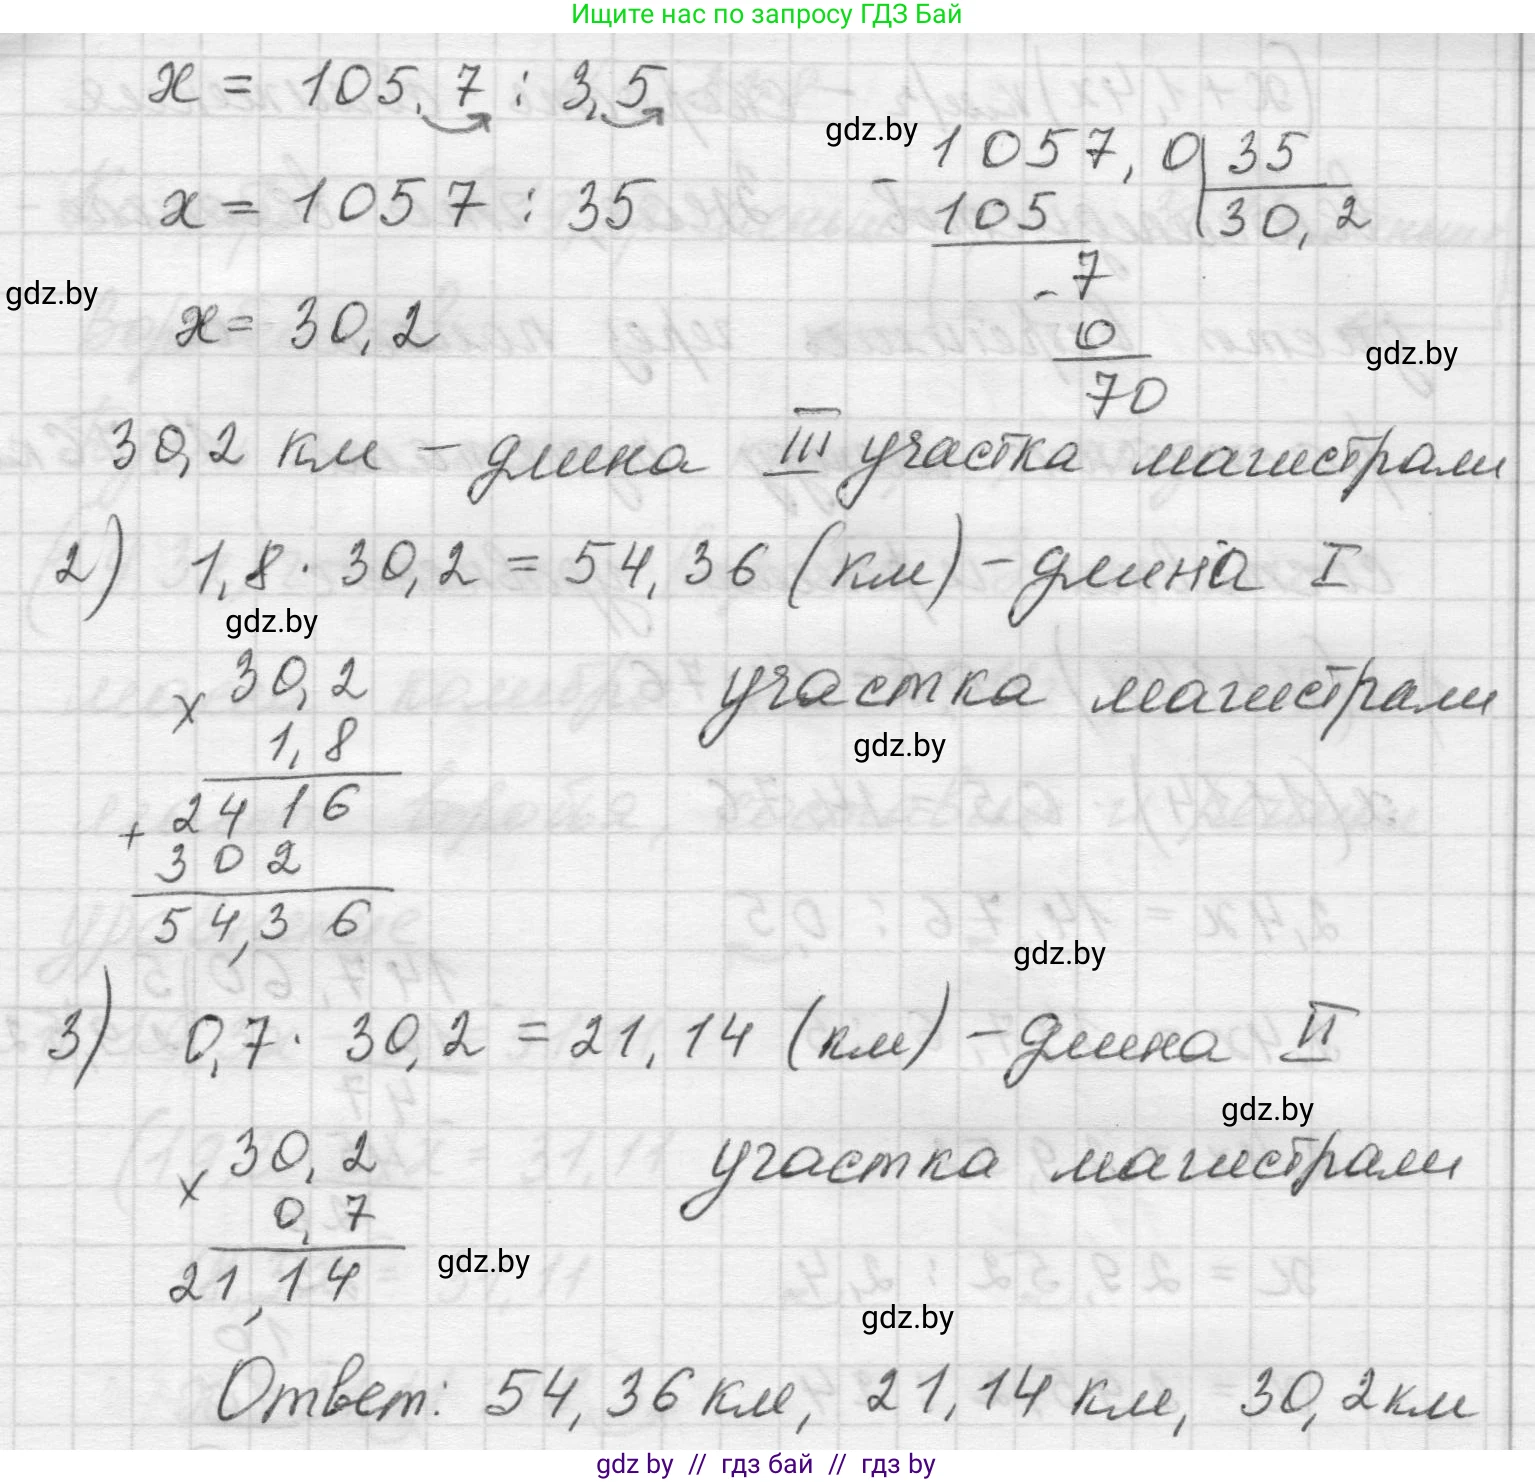 Ищите нас по запросу ГДЗ Бай
x = 105,7 : 3,5
gdz.by
1057,0 | 35
x = 1057 : 35
- 105
30,2
gdz.by
- 7
x = 30,2
0
gdz.by
70
30,2 км – длина III участка магистрали
2) 1,8 · 30,2 = 54,36 (км) – длина I
gdz.by
участка магистрали
gdz.by
x 30,2
1,8
+ 2416
302
54,36
gdz.by
3) 0,7 · 30,2 = 21,14 (км) – длина II
gdz.by
участка магистрали
x 30,2
0,7
21,14
gdz.by
gdz.by
Ответ: 54,36 км, 21,14 км, 30,2 км
gdz by // гдз бай // гдз by